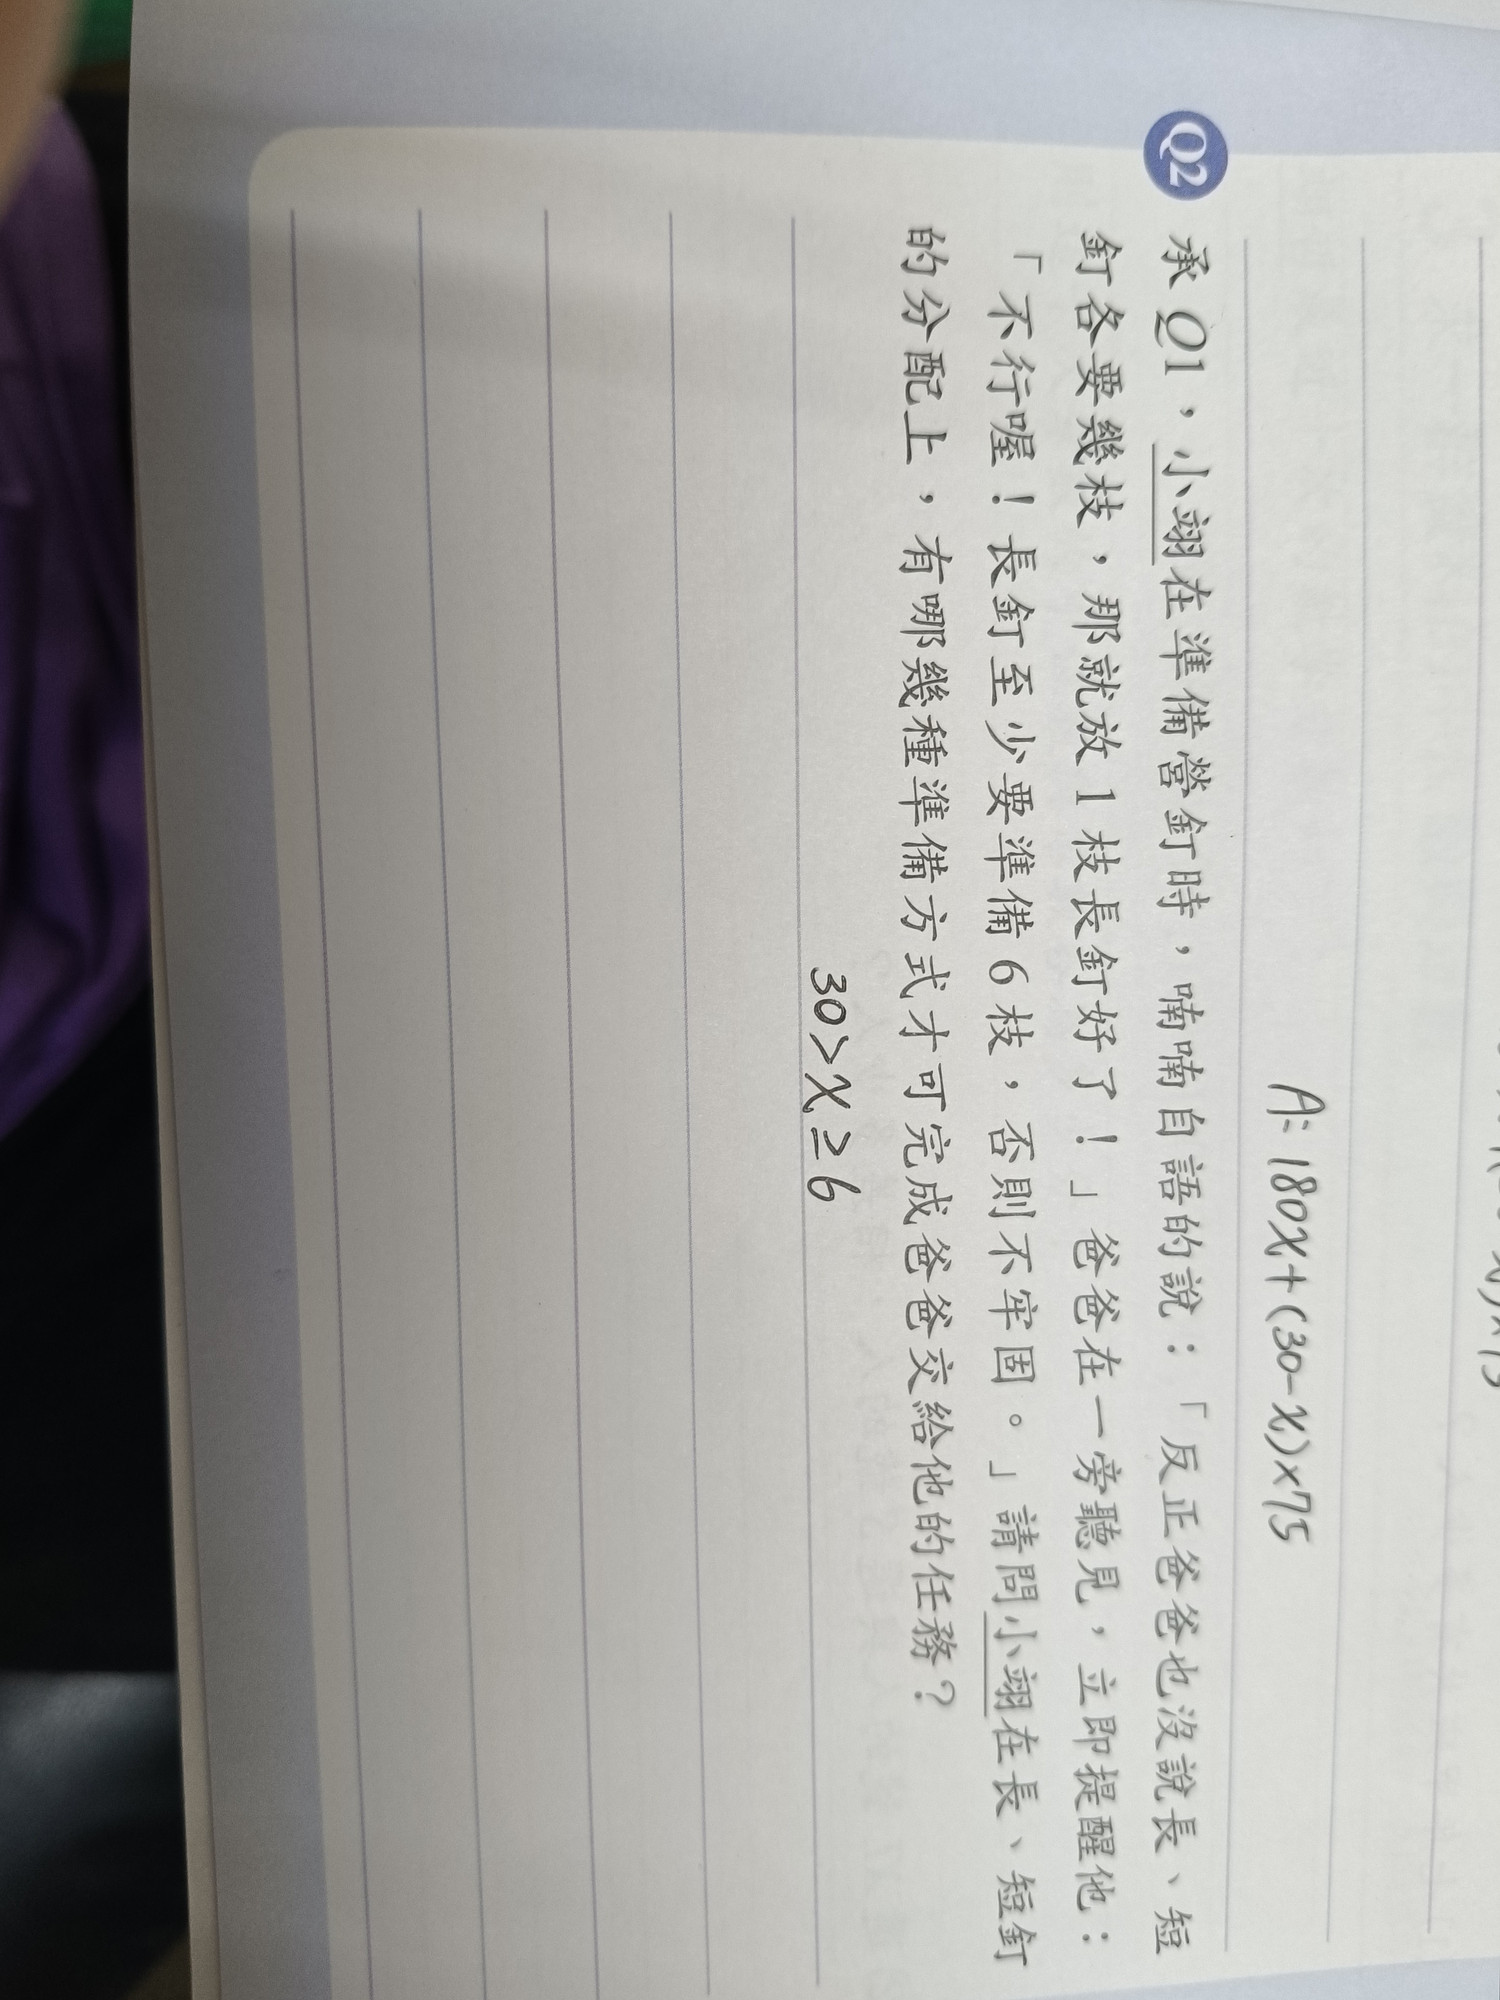 A: 180x+(30-x)×75
Q2 承 Q1，小翊在準備營釘時，喃喃自語的說：「反正爸爸也沒說長、短
釘各要幾枝，那就放 1 枝長釘好了！」爸爸在一旁聽見，立即提醒他：
「不行喔！長釘至少要準備 6 枝，否則不牢固。」請問小翊在長、短釘
的分配上，有哪幾種準備方式才可完成爸爸交給他的任務？
30>x≥6